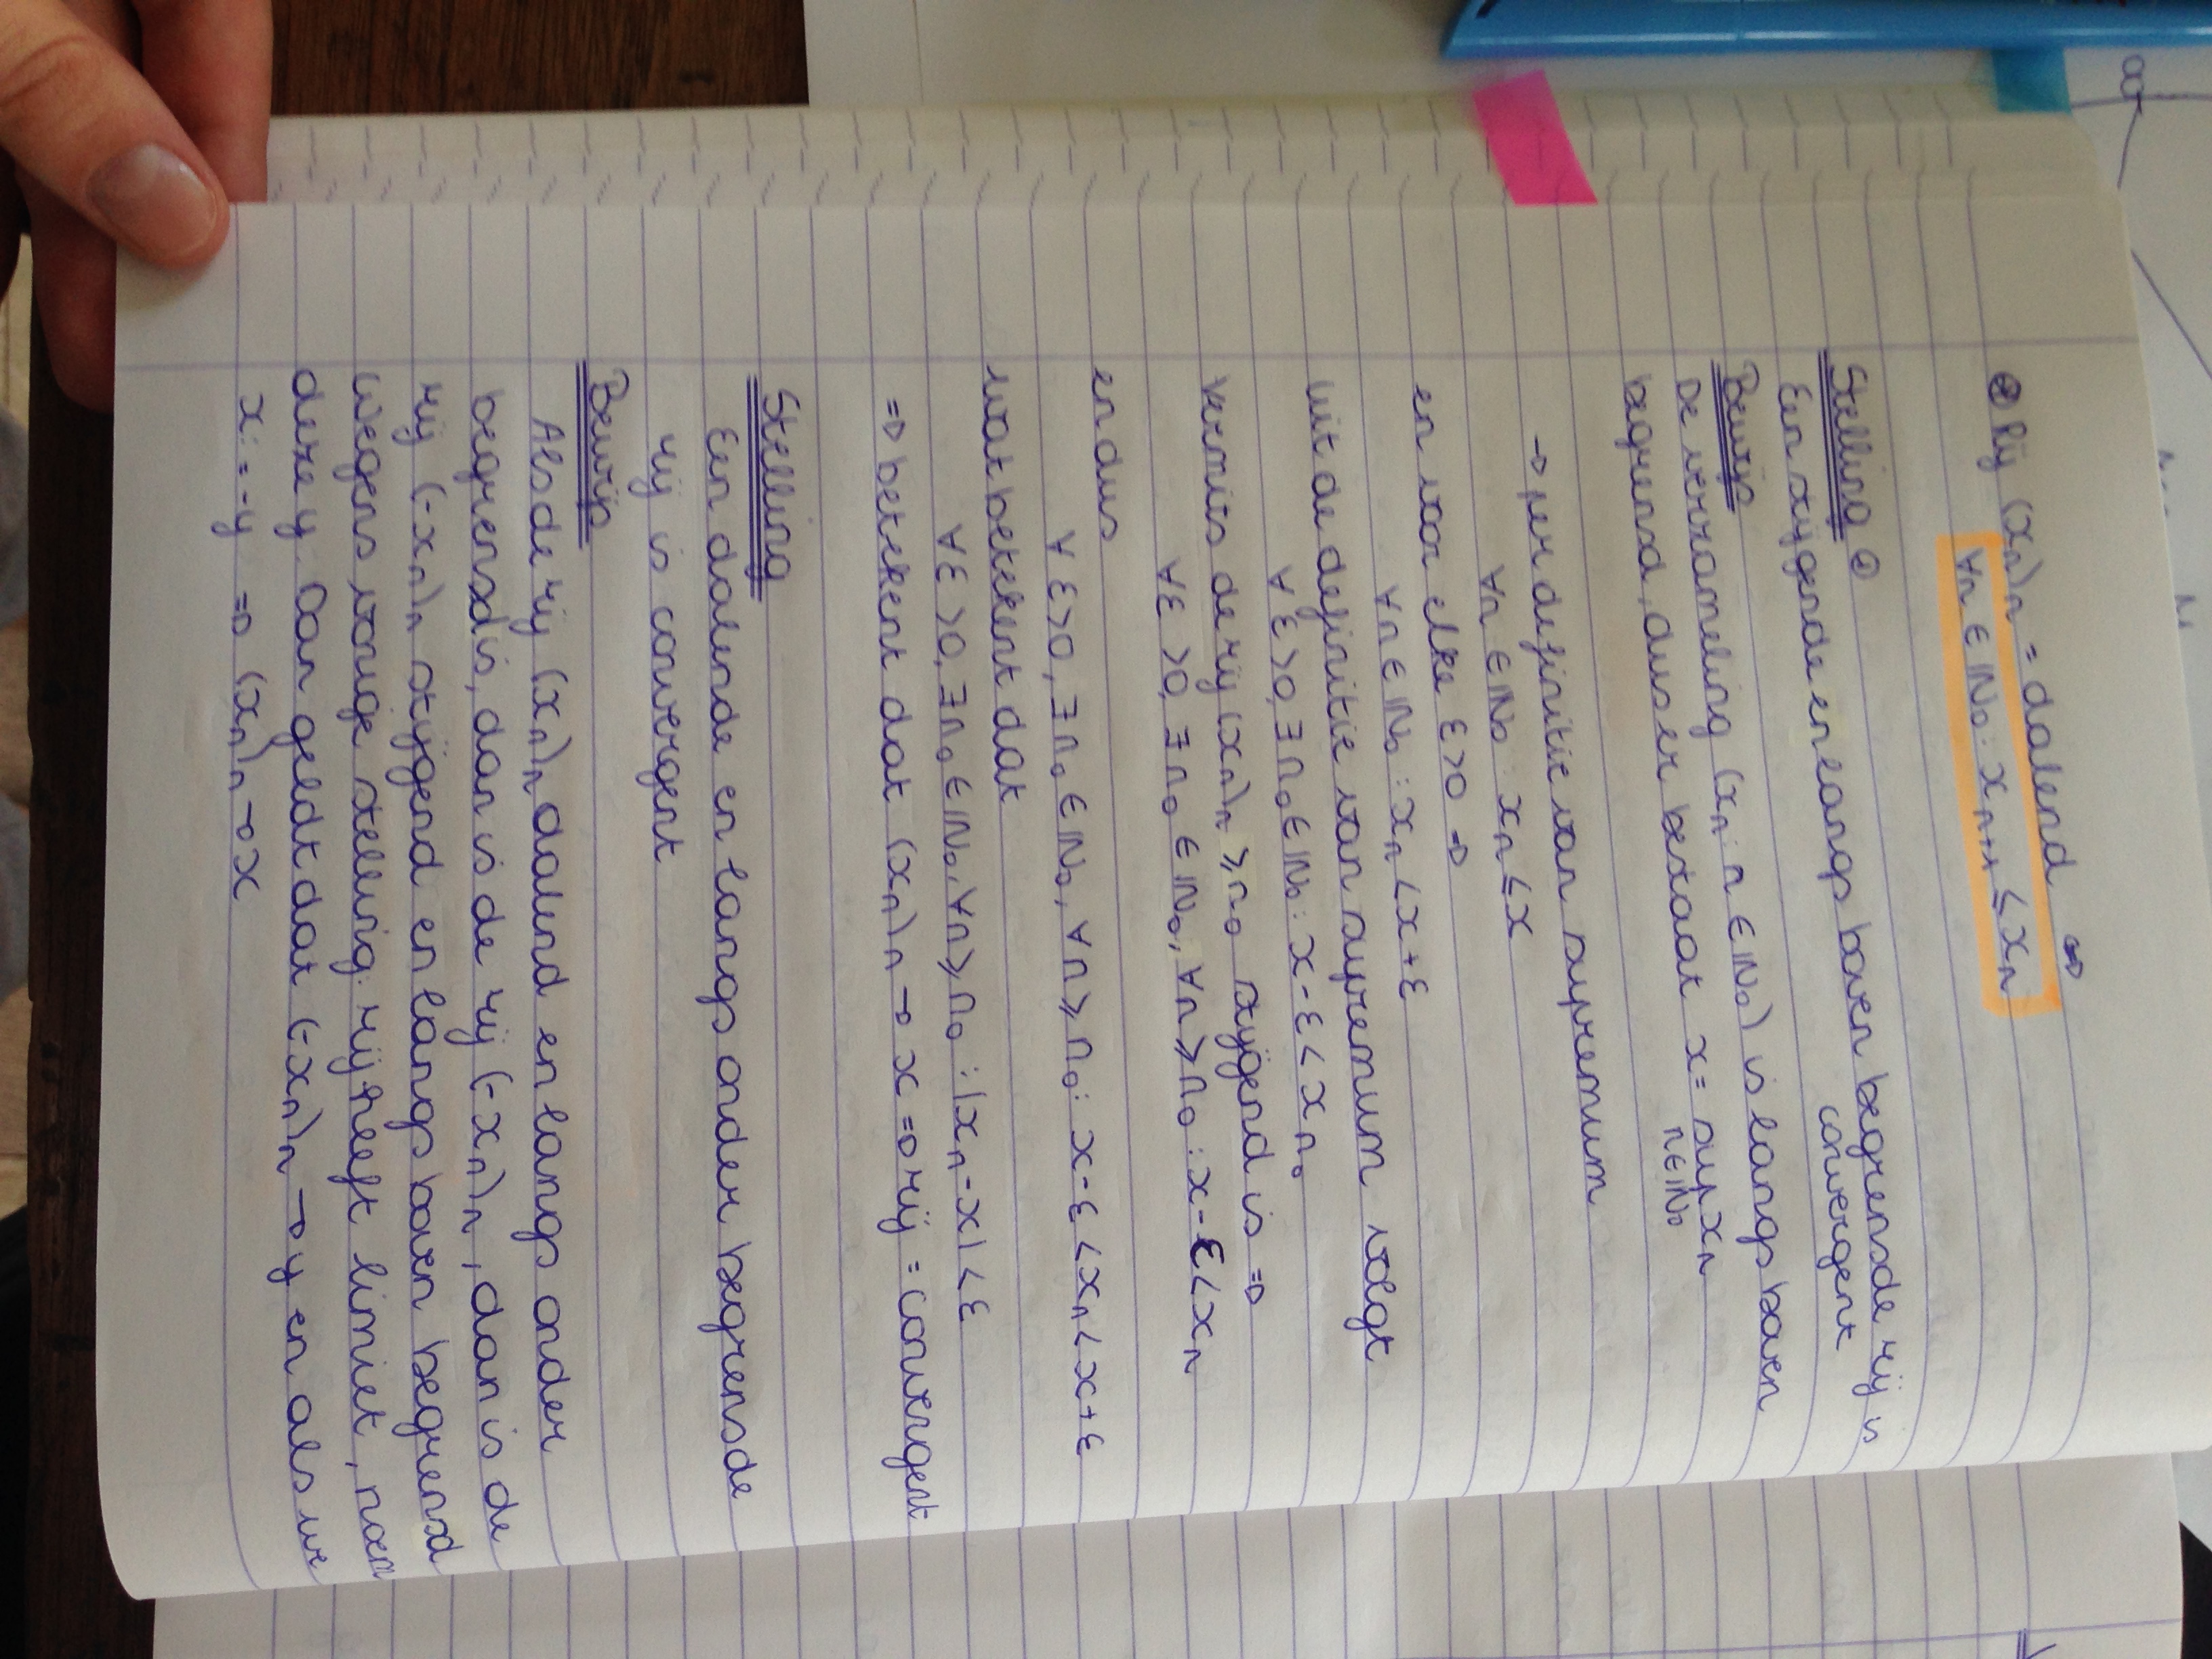 ⊛ Rij (xₙ)ₙ = dalend ⇔
∀n ∈ ℕ₀: xₙ₊₁ ≤ xₙ
Stelling
Een stijgende en langs boven begrensde rij is
convergent
Bewijs
De verzameling (xₙ: n ∈ ℕ₀) is langs boven
begrensd, dus er bestaat x = sup xₙ
n∈ℕ₀
→ per definitie van supremum
∀n ∈ ℕ₀: xₙ ≤ x
en voor elke ε>0 →
∀n ∈ ℕ₀: xₙ < x+ε
uit de definitie van supremum volgt
∀ε>0, ∃n₀ ∈ ℕ₀: x-ε < xₙ₀
Vermits de rij (xₙ)ₙ ≥ n₀ stijgend is ⇒
∀ε >0, ∃n₀ ∈ ℕ₀, ∀n ≥ n₀: x-ε < xₙ
en dus
∀ε>0, ∃n₀ ∈ ℕ₀, ∀n ≥ n₀: x-ε < xₙ < x+ε
wat betekent dat
∀ε >0, ∃n₀ ∈ ℕ₀, ∀n ≥ n₀: |xₙ-x| < ε
⇒ betekent dat (xₙ)ₙ → x ⇒ rij = convergent
Stelling
Een dalende en langs onder begrensde
rij is convergent
Bewijs
Als de rij (xₙ)ₙ dalend en langs onder
begrensd is, dan is de rij (-xₙ)ₙ, dan is de
rij (-xₙ)ₙ stijgend en langs boven begrensd
Wegens vorige stelling: rij heeft limiet, noem
deze y. Dan geldt dat (-xₙ)ₙ → y en als we
x:=-y ⇒ (xₙ)ₙ → x